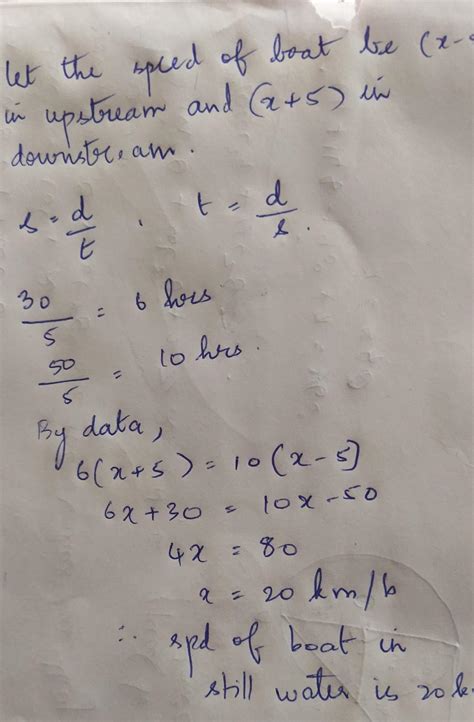 let the speed of boat be (x-
in upstream and (x+5) in
downstream.
s = d/t , t = d/s.
30/5 = 6 hrs
50/5 = 10 hrs.
By data,
6(x+5) = 10(x-5)
6x+30 = 10x-50
4x = 80
x = 20 km/h
∴ spd of boat in
still water is 20k